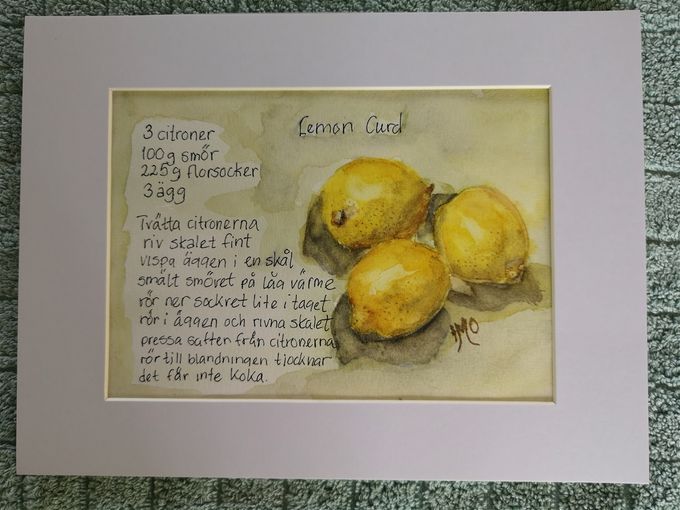 Lemon Curd
3 citroner
100g smör
225g florsocker
3 ägg
Tvätta citronerna
riv skalet fint
vispa äggen i en skål
smält smöret på låg värme
rör ner sockret lite i taget
rör i äggen och rivna skalet
pressa saften från citronerna
rör till blandningen tjocknar
det får inte koka.
HMO